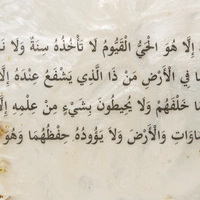 إِلَّا هُوَ الْحَيُّ الْقَيُّومُ لَا تَأْخُذُهُ سِنَةٌ وَلَا
فِي الْأَرْضِ مَنْ ذَا الَّذِي يَشْفَعُ عِنْدَهُ
خَلْفَهُمْ وَلَا يُحِيطُونَ بِشَيْءٍ مِنْ عِلْمِهِ
وَالْأَرْضَ وَلَا يَؤُودُهُ حِفْظُهُمَا وَهُوَ